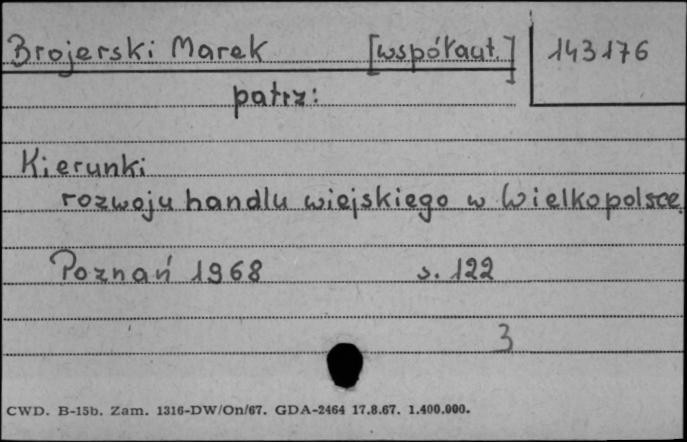 Brojerski Marek [współaut.] 143176
patrz:
Kierunki
rozwoju handlu wiejskiego w Wielkopolsce.
Poznań 1968 s. 122
3
CWD. B-15b. Zam. 1316-DW/On/67. GDA-2464 17.8.67. 1.400.000.